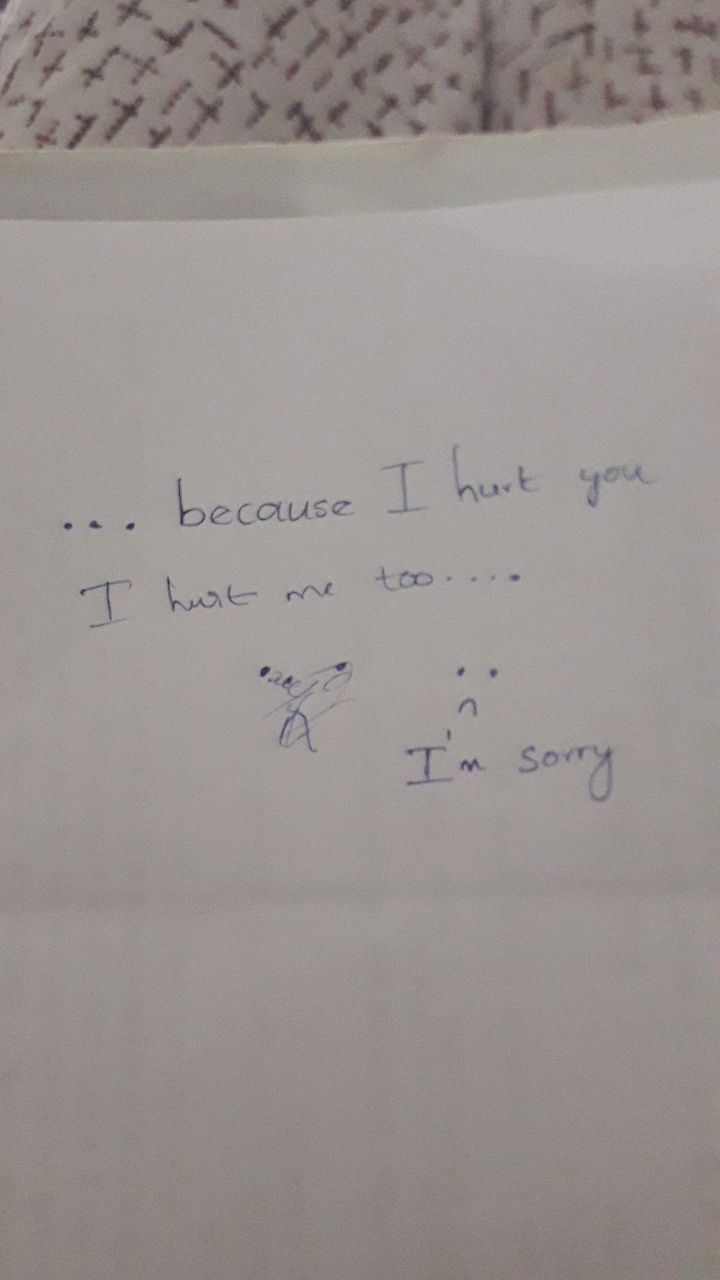 ... because I hurt you
I hurt me too.....
I'm sorry